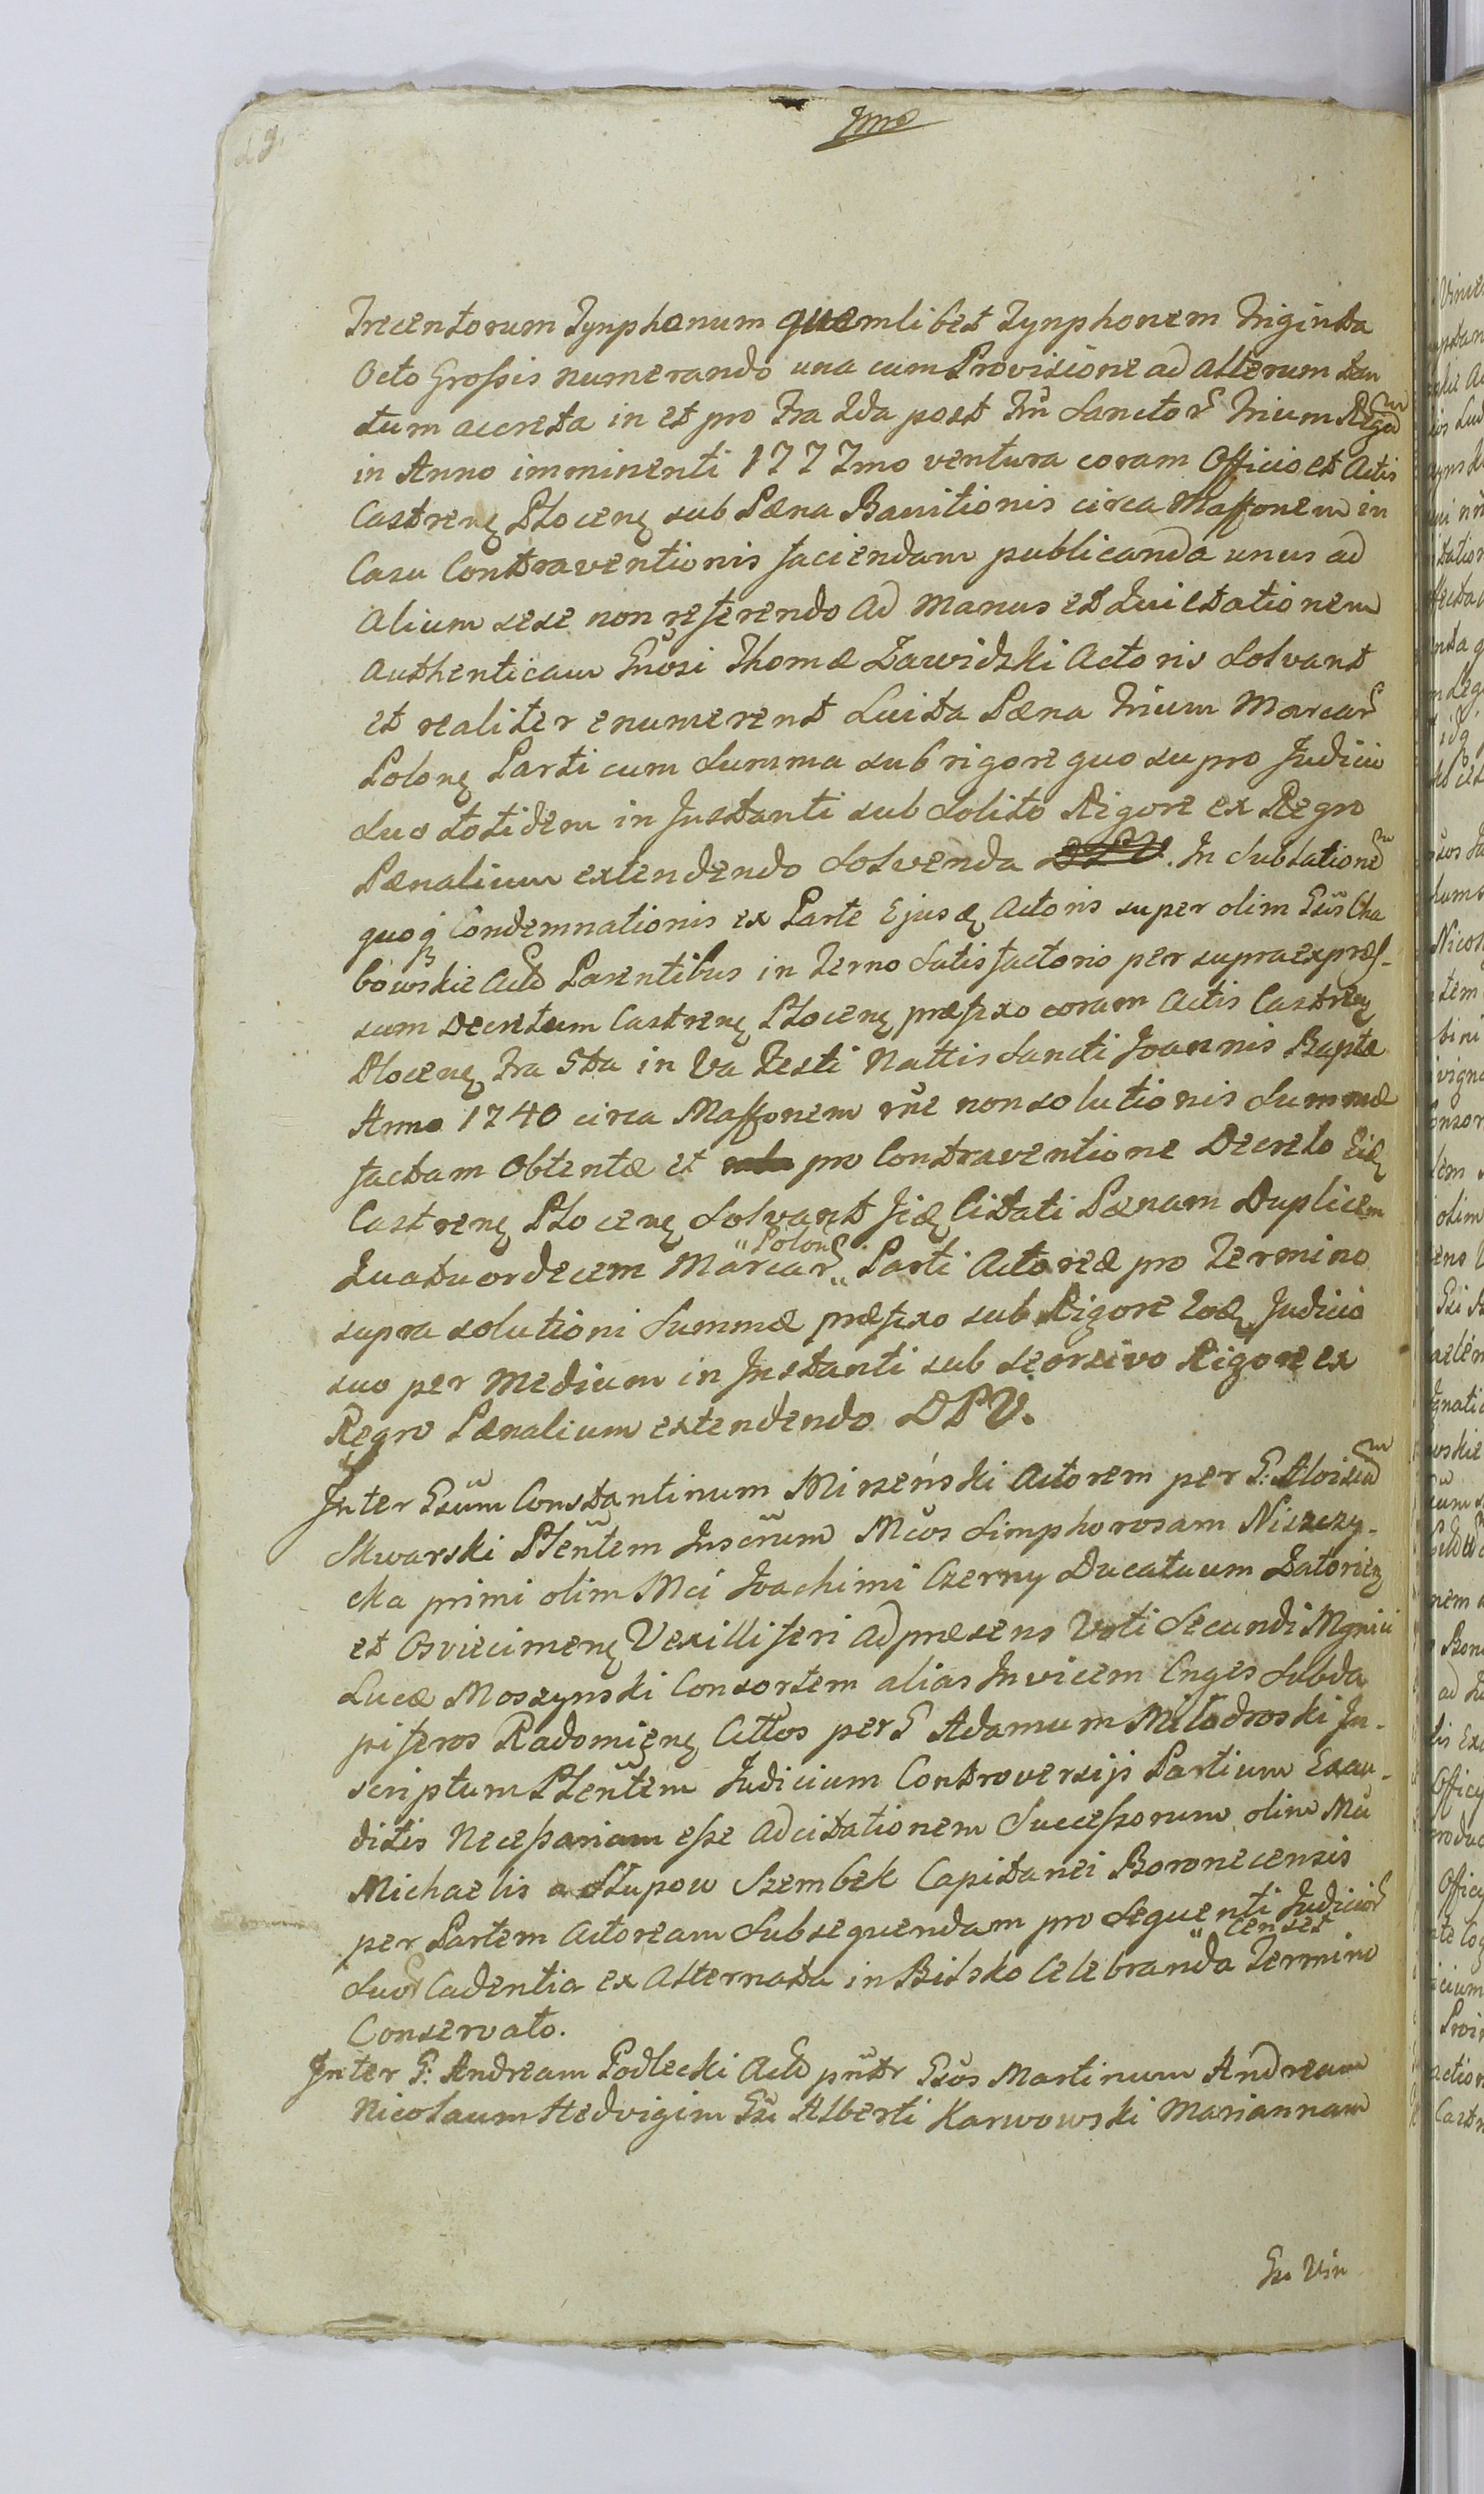 29.
Trecentorum Tynphonum quemlibet Tynphonem Triginta
Octo Grossis numerando una cum Provisione ad alterum tan
tum accreta in et pro Fra 2da post Fm̃ Sanctor Trium Regũ
in Anno imminenti 1777mo ventura coram Officio et Actis
Castren Plocen sub Pæna Banitionis circa Maffonem in
Casu Contraventionis faciendam publicanda unus ad
alium sese non referendo ad Manus et Quietationem
authenticam Gñosi Thomæ Zawidzki Actoris Solvant
et realiter enumerent Luita Pæna Trium Marcar
Polon Parti cum Summa sub rigore quo supro Judicio
Suo totidem in Instanti sub Solito Rigore ex Regro
Pænalium extendendo Solvenda DPV. In Sublatione
quoq Condemnationis ex Parte Ejusd Actoris super olim Gsis Cha
bowskie Actũ Parentibus in Termo Satisfactorio per supraexpres-
sum Decretum Castren Plocen præfixo coram Actis Castren
Plocen Fra 5ta in Va Festi Nattis Sancti Joannis Baptæ
Anno 1740 circa Maffonem rñe non solutionis Summæ
factam Obtentæ et pro Contraventione Decreto Eid
Castren Plocen Solvant Jid Citati Pænam Duplicem
Quatuordecem Marcar "Polon" Parti Actoreæ pro Termino
supra solutioni Summæ præfixo sub Rigore Eod Judicio
suo per Medium in Instanti sub seorsivo Rigore ex
Regro Pænalium extendendo DPV.
Inter Gsum Constantinum Mirzeński Actorem per G: Aloisiũ
Skwarski Plentem Inscrum Mcos Simphorosam Niszczy-
cka primi olim Mci Joachimi Czerny Ducatuum Zatorien
et Osviecimen Vexilliferi ad præsens Voti Secundi Mgnici
Lucæ Moszynski Consortem alias Invicem Cnges Subda
piferos Radomien Cittos per G Adamum Miłodroski In-
scriptum Plentem Judicium Controversijs Partium Exau-
ditis Necessariam esse adcitationem Successorum olim Mci
Michaelis a Słupow Szembek Capitanei Boronecensis
per Partem Actoream Subsequendam pro Sequenti Judicior
Suor Cadentia ex Alternata in Bilsko Celebranda "censet Termino
Conservato.
Inter G: Andream Podlecki Actũ pñtr Gsos Martinum Andream
Nicolaum Hedvigim Gsi Alberti Karwowski Mariannam
Gsi Vin